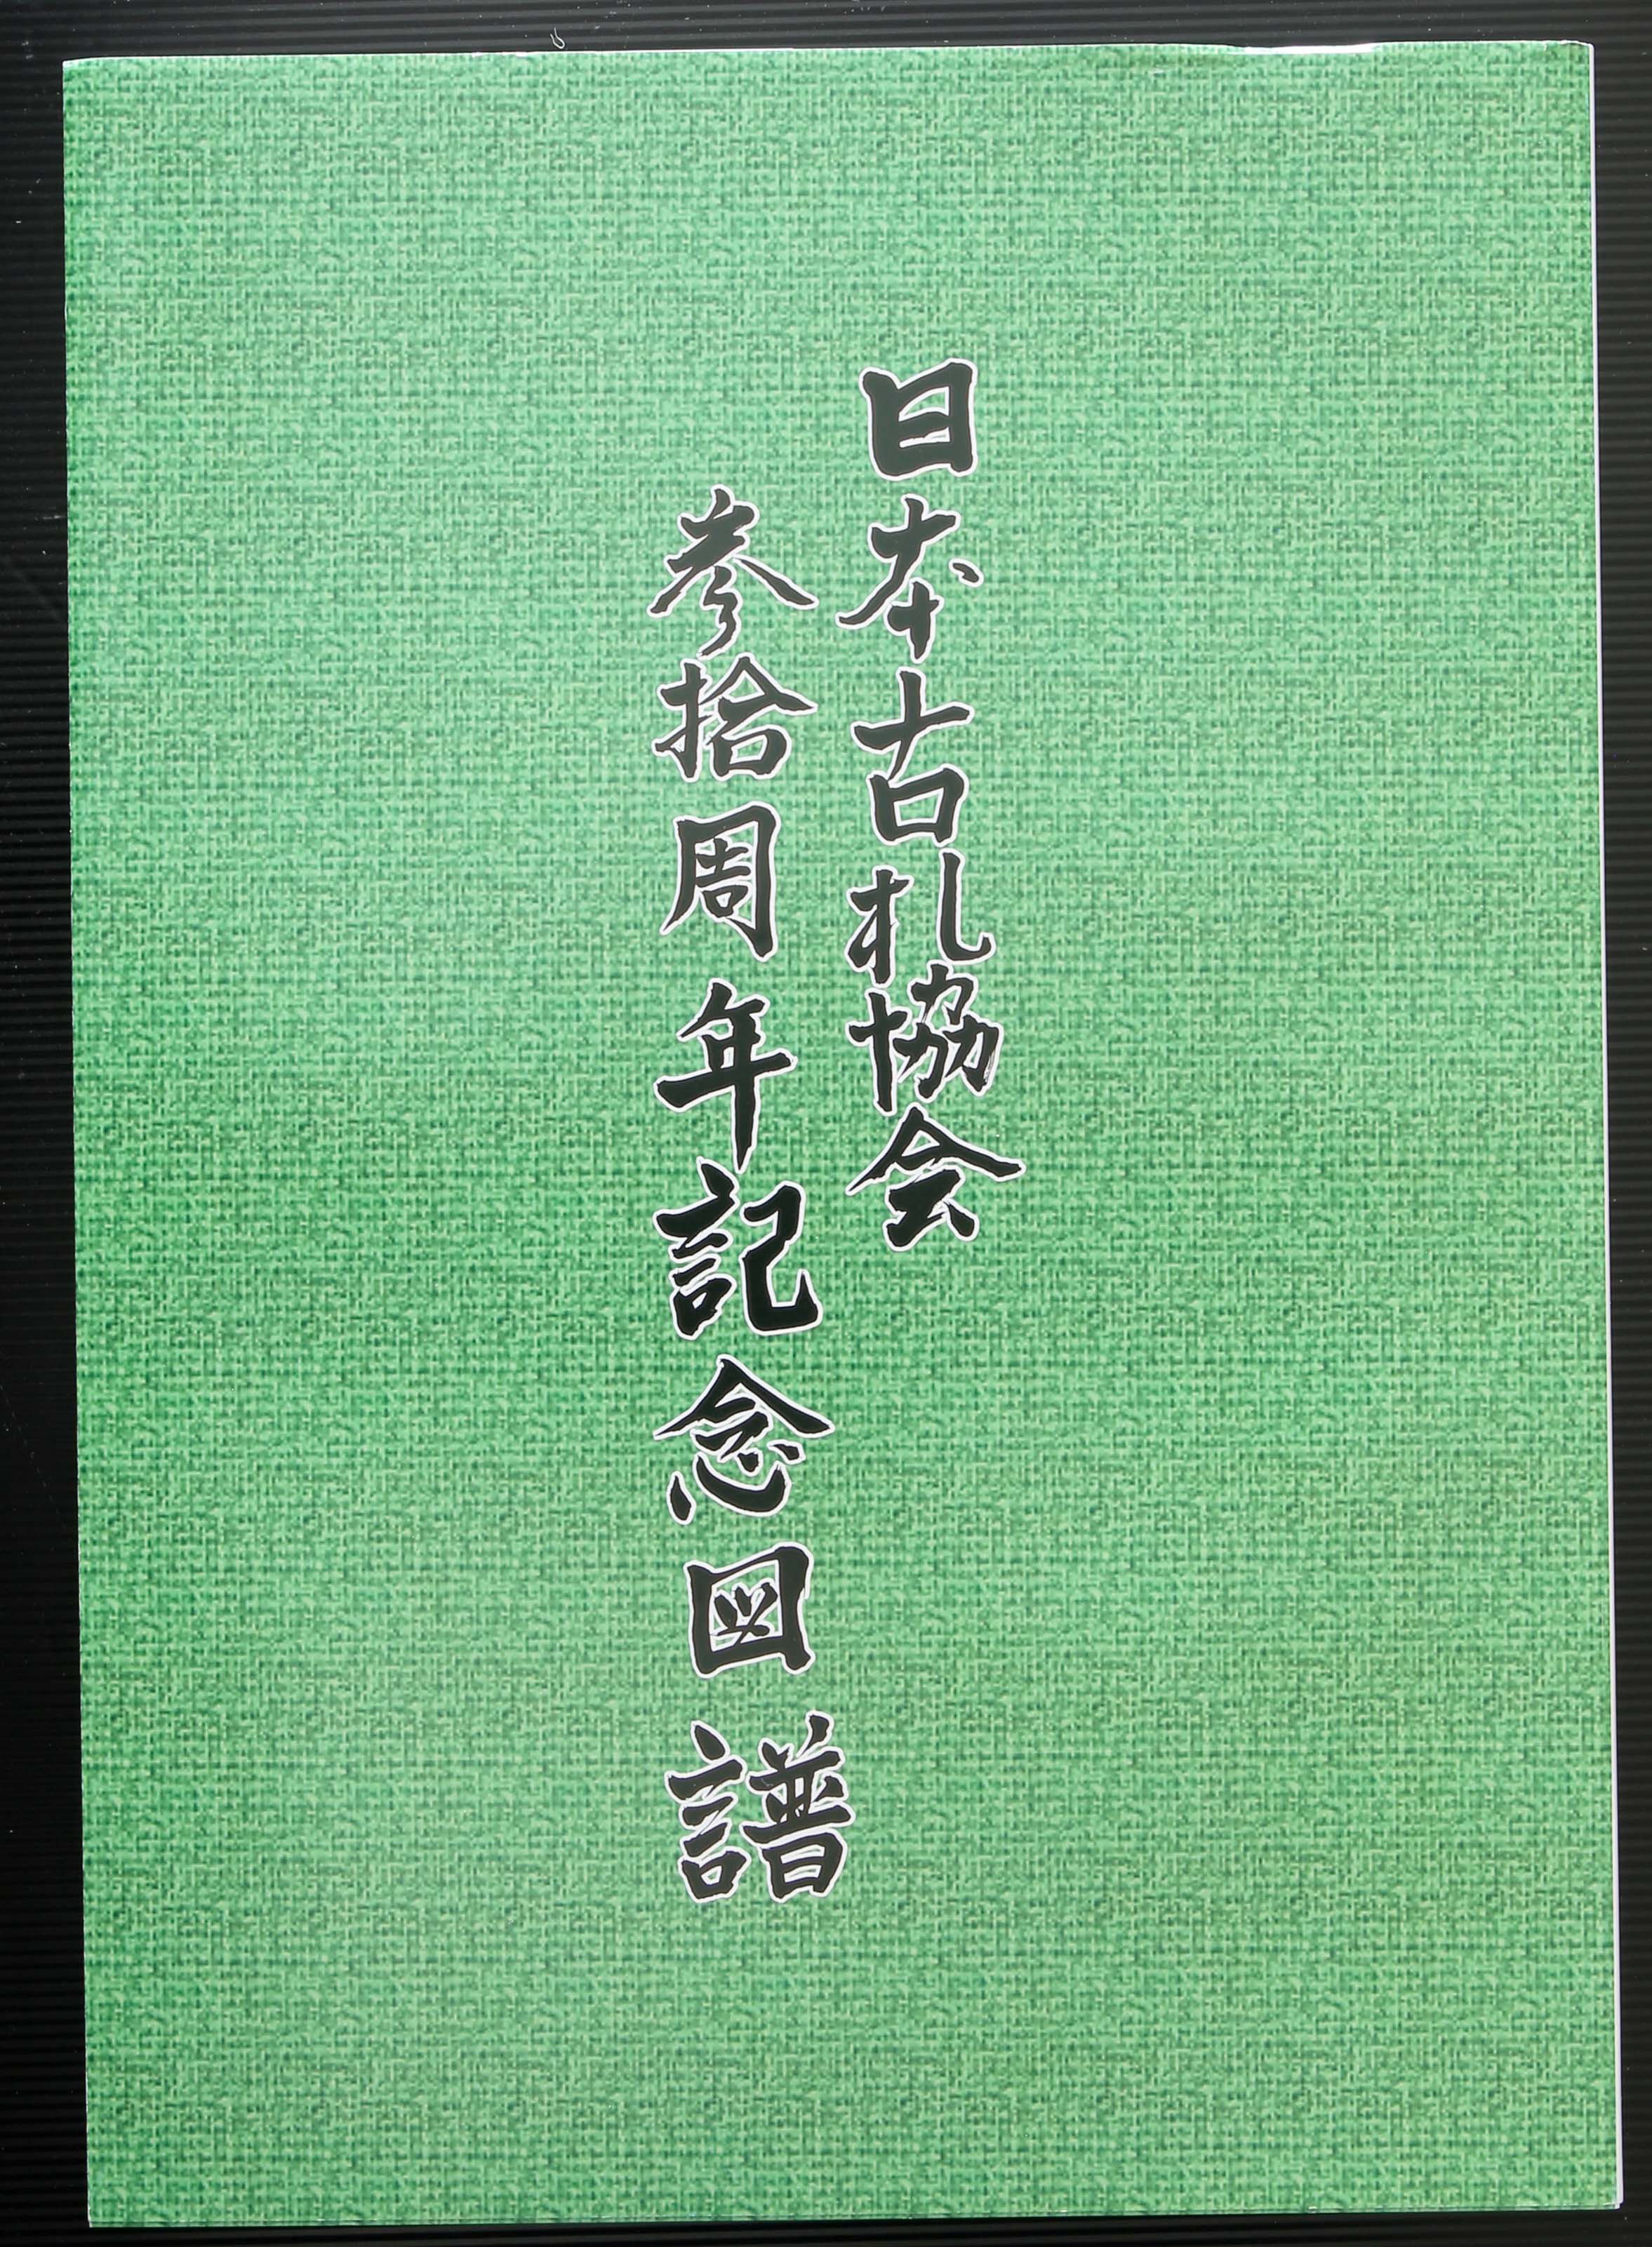 日本古札協会
参拾周年記念図譜